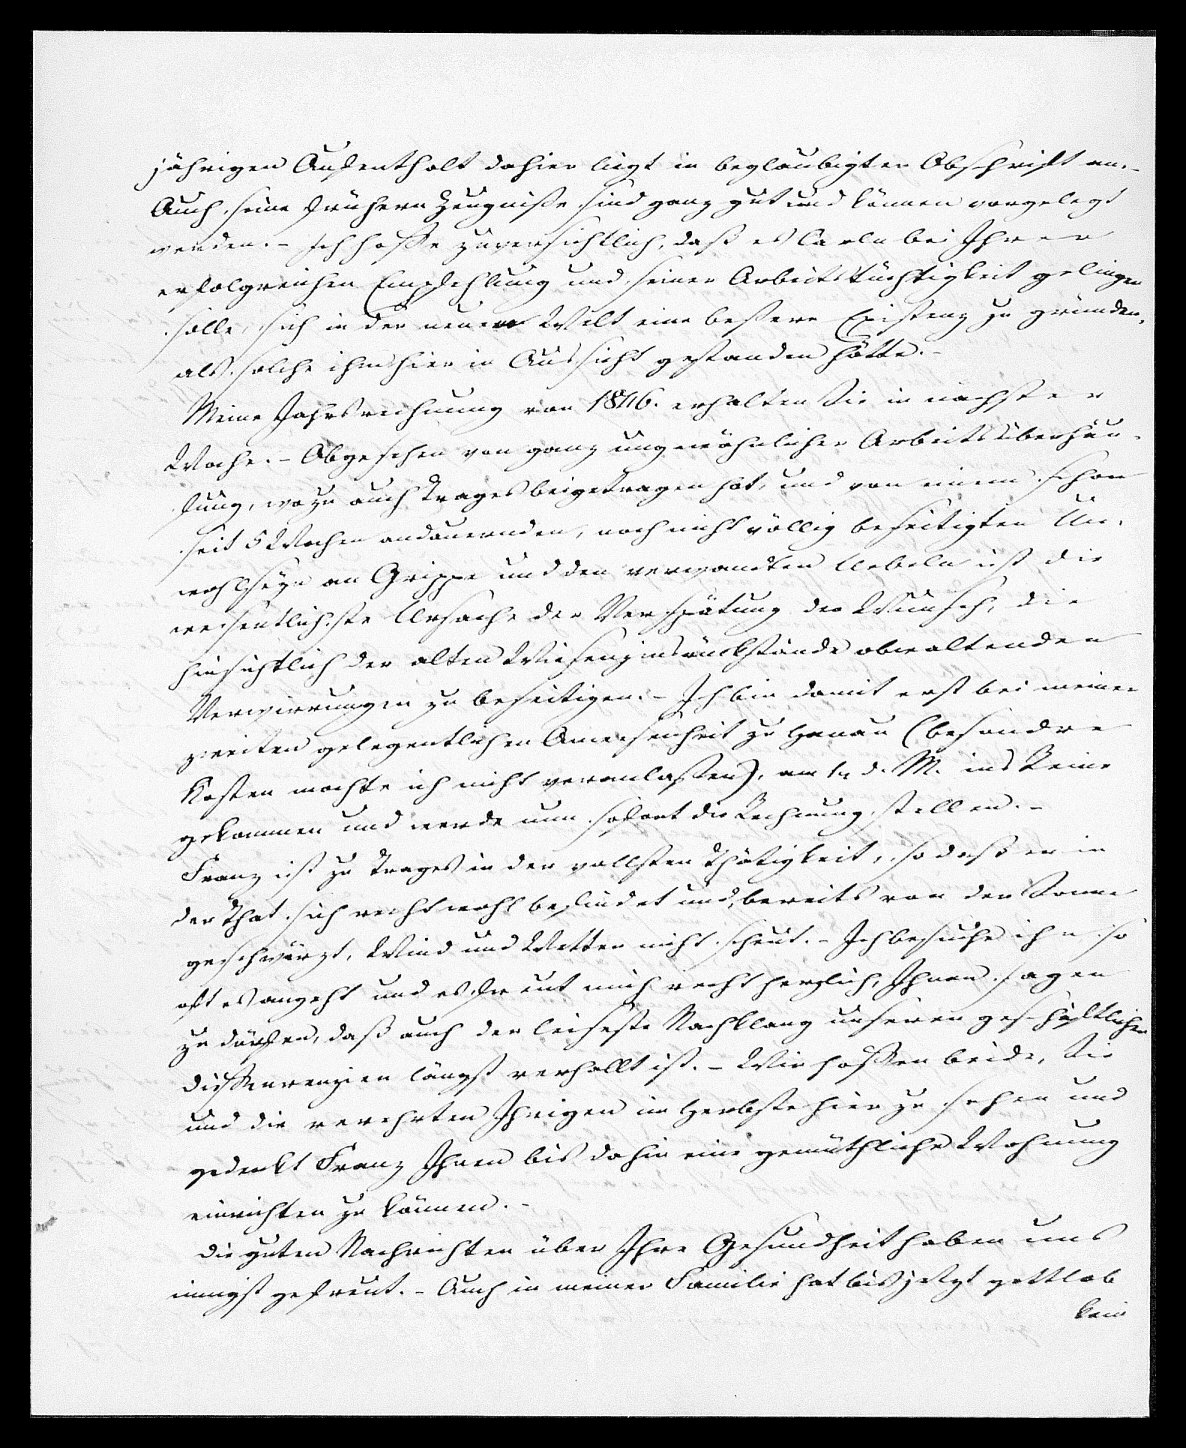 jährigen Aufenthalt dahier liegt in beglaubigter Abschrift an. –
Auch seine frühern Zeugniße sind ganz gut und können vorgelegt
werden. – Ich hoffe zuversichtlich, daß es Carln bei Ihrer
erfolgreichen Empfehlung und seiner Arbeitstüchtigkeit gelingen
solle, sich in der neuen Welt eine beßere Existenz zu gründen,
als solche ihm hier in Aussicht gestanden hätte. –
Meine Jahrsrechnung von 1846. erhalten Sie in nächster
Woche. – Abgesehen von ganz ungewöhnlicher Arbeitsüberhäu-
fung, wozu auch Trages beigetragen hat, und von einem schon
seit 5 Wochen andauernden, noch nicht völlig beseitigten Un-
wohlseyn an Grippe und den verwandten Uebeln ist die
wesentlichste Ursache der Verspätung der Wunsch, die
hinsichtlich der alten Wiesenzinsrückstände obwaltenden
Verwirrungen zu beseitigen. – Ich bin damit erst bei meiner
zweiten gelegentlichen Anwesenheit zu Hanau (besondre
Kosten mochte ich nicht veranlaßen), am d. M. ins Reine
gekommen und werde nun sofort die Rechnung stellen. –
Franz ist zu Trages in der vollsten Thätigkeit, so daß er in
der That sich recht wohl befindet und, bereits von der Sonne
geschwärzt, Wind und Wetter nicht scheut. – Ich besuche ihn so
oft es angeht und es freut mich recht herzlich, Ihnen sagen
zu dürfen, daß auch der leiseste Nachklang unserer geschäftlichen
Differenzien längst verhallt ist. – Wir hoffen beide, Sie
und die verehrten Ihrigen im Herbste hier zu sehen und
gedenkt Franz Ihnen bis dahin eine gemüthliche Wohnung
einrichten zu können. –
Die guten Nachrichten über Ihre Gesundheit haben uns
innigst gefreut. – Auch in meiner Familie hat bis jetzt gottlob
kein